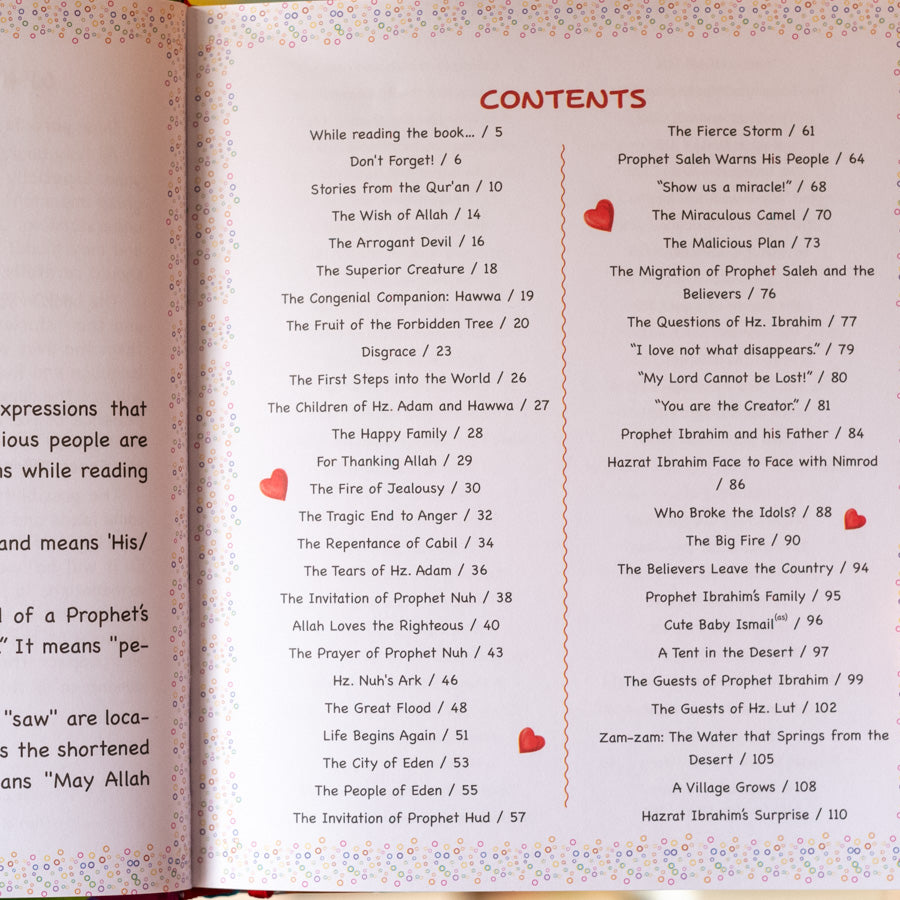 xpressions that
ious people are
ns while reading
and means 'His/
l of a Prophet's
." It means "pe-
"saw" are loca-
s the shortened
ans "May Allah
CONTENTS
While reading the book... / 5
Don't Forget! / 6
Stories from the Qur'an / 10
The Wish of Allah / 14
The Arrogant Devil / 16
The Superior Creature / 18
The Congenial Companion: Hawwa / 19
The Fruit of the Forbidden Tree / 20
Disgrace / 23
The First Steps into the World / 26
The Children of Hz. Adam and Hawwa / 27
The Happy Family / 28
For Thanking Allah / 29
The Fire of Jealousy / 30
The Tragic End to Anger / 32
The Repentance of Cabil / 34
The Tears of Hz. Adam / 36
The Invitation of Prophet Nuh / 38
Allah Loves the Righteous / 40
The Prayer of Prophet Nuh / 43
Hz. Nuh's Ark / 46
The Great Flood / 48
Life Begins Again / 51
The City of Eden / 53
The People of Eden / 55
The Invitation of Prophet Hud / 57
The Fierce Storm / 61
Prophet Saleh Warns His People / 64
"Show us a miracle!" / 68
The Miraculous Camel / 70
The Malicious Plan / 73
The Migration of Prophet Saleh and the
Believers / 76
The Questions of Hz. Ibrahim / 77
"I love not what disappears." / 79
"My Lord Cannot be Lost!" / 80
"You are the Creator." / 81
Prophet Ibrahim and his Father / 84
Hazrat Ibrahim Face to Face with Nimrod
/ 86
Who Broke the Idols? / 88
The Big Fire / 90
The Believers Leave the Country / 94
Prophet Ibrahim's Family / 95
Cute Baby Ismail(as) / 96
A Tent in the Desert / 97
The Guests of Prophet Ibrahim / 99
The Guests of Hz. Lut / 102
Zam-zam: The Water that Springs from the
Desert / 105
A Village Grows / 108
Hazrat Ibrahim's Surprise / 110